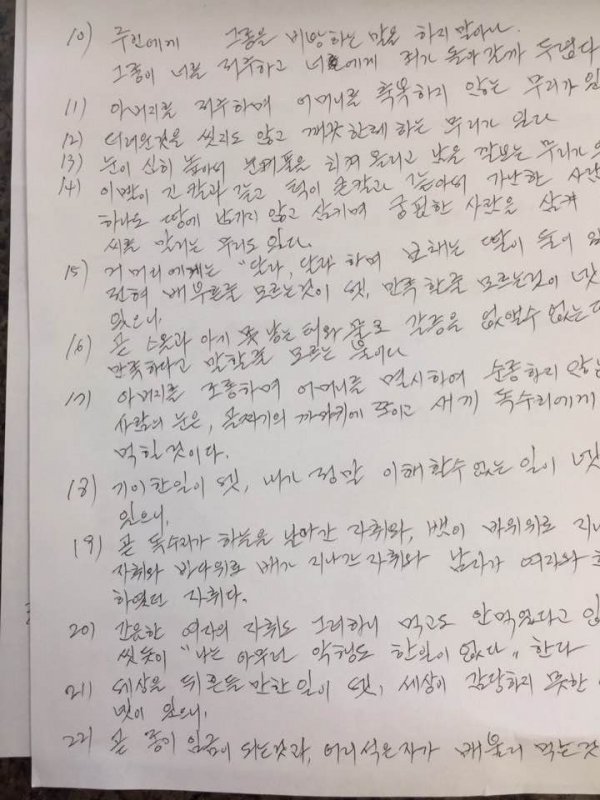 10) 주인에게 그종을 비방하는 말을 하지말아라.
그종이 너를 저주하고 너에게 죄가 돌아갈까 두렵다
11) 아버지를 저주하며 어머니를 축복하지 않는 무리가 있
12) 더러운것을 씻지도 않고 깨끗한체 하는 무리가 있다
13) 눈이 심히 높아서 눈꺼풀을 치켜 올리고 남을 깔보는 무리가
14) 이빨이 긴 칼과 같고 턱이 큰칼과 같아서 가난한 사람
하나도 땅에 남기지 않고 삼키며 궁핍한 사람을 삼켜
씨를 말리는 무리도 있다.
15) 거머리에게는 "달라, 달라 하며 보채는 딸이 둘이 있
전혀 배부름을 모르는것이 셋, 만족함을 모르는것이 넷
있으니,
16) 곧 스올과 아기 못 낳는 태와 물로 갈증을 없앨수 없는 땅
만족하다고 말할줄 모르는 불이다
17) 아버지를 조롱하며 어머니를 멸시하여 순종하지 않는
사람의 눈은, 골짜기의 까마귀에 쪼이고 새끼 독수리에게
먹힐것이다.
18) 기이한일이 셋, 내가 정말 이해할수없는 일이 넷
있으니,
19) 곧 독수리가 하늘을 날아간 자취와, 뱀이 바위위로 지나
자취와 바다위로 배가 지나간 자취와 남자가 여자와 함
하였던 자취다.
20) 간음한 여자의 자취도 그러하니 먹고도 안먹었다고 입
씻듯이 "나는 아무런 악행도 한일이 없다" 한다
21) 세상을 뒤흔들 만한일이 셋, 세상이 감당하지 못한
넷이 있으니,
22) 곧 종이 임금이 되는것과, 어리석은자가 배불리 먹는것